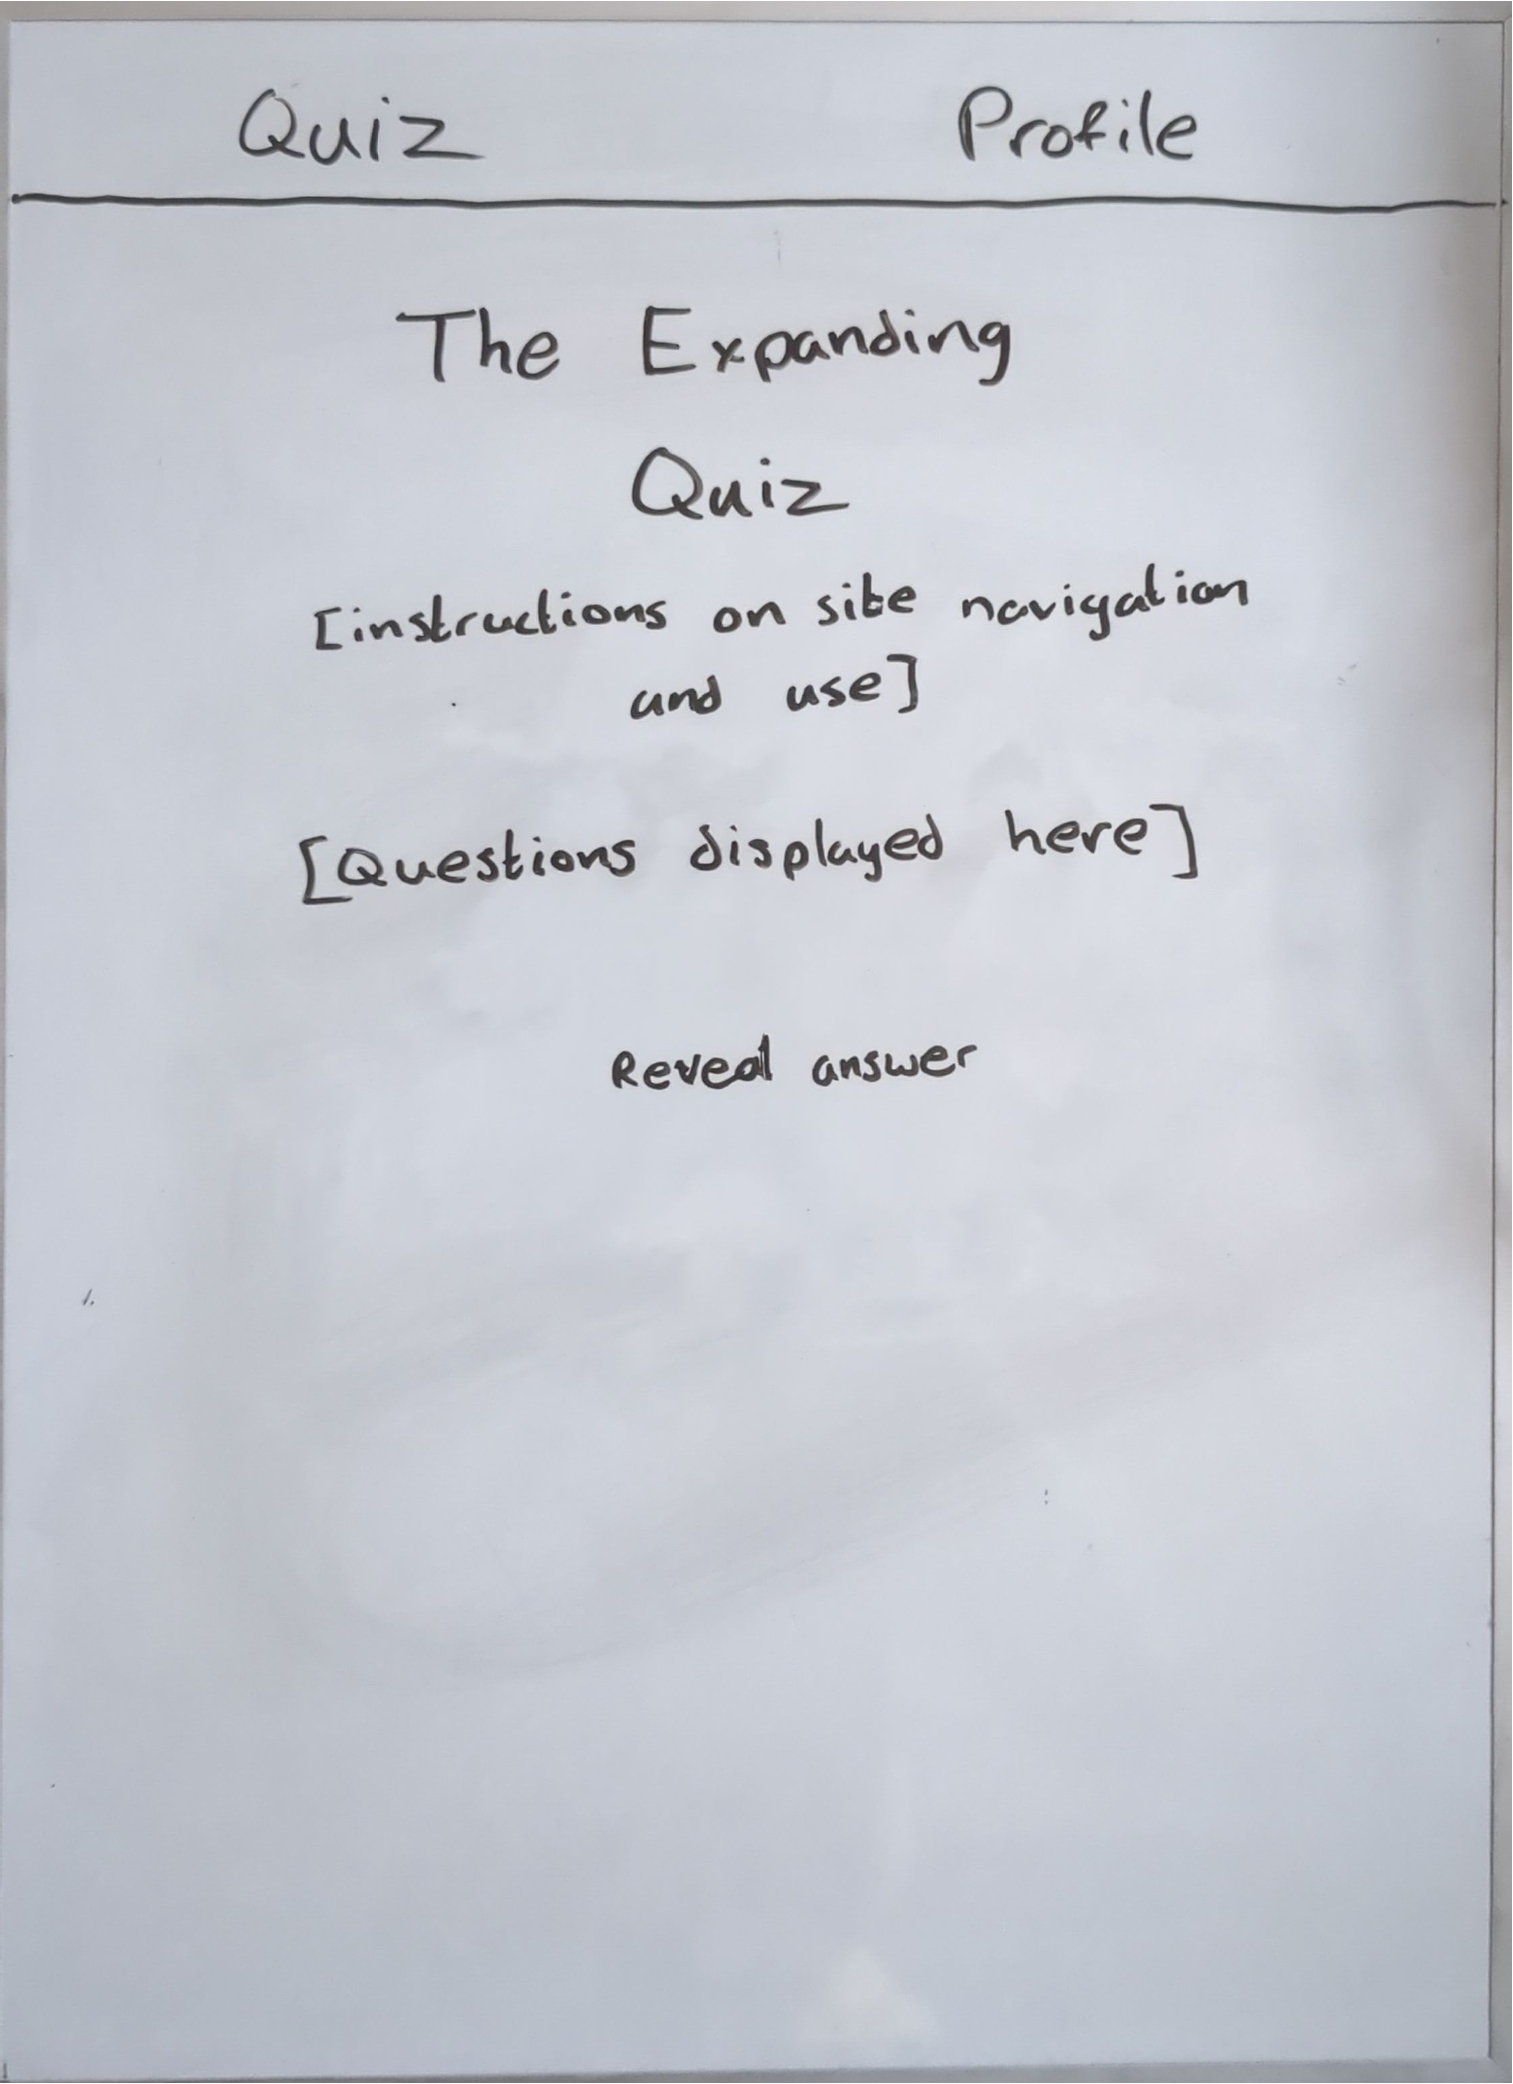 Quiz Profile
The Expanding
Quiz
[instructions on site navigation
and use]
[Questions displayed here]
Reveal answer